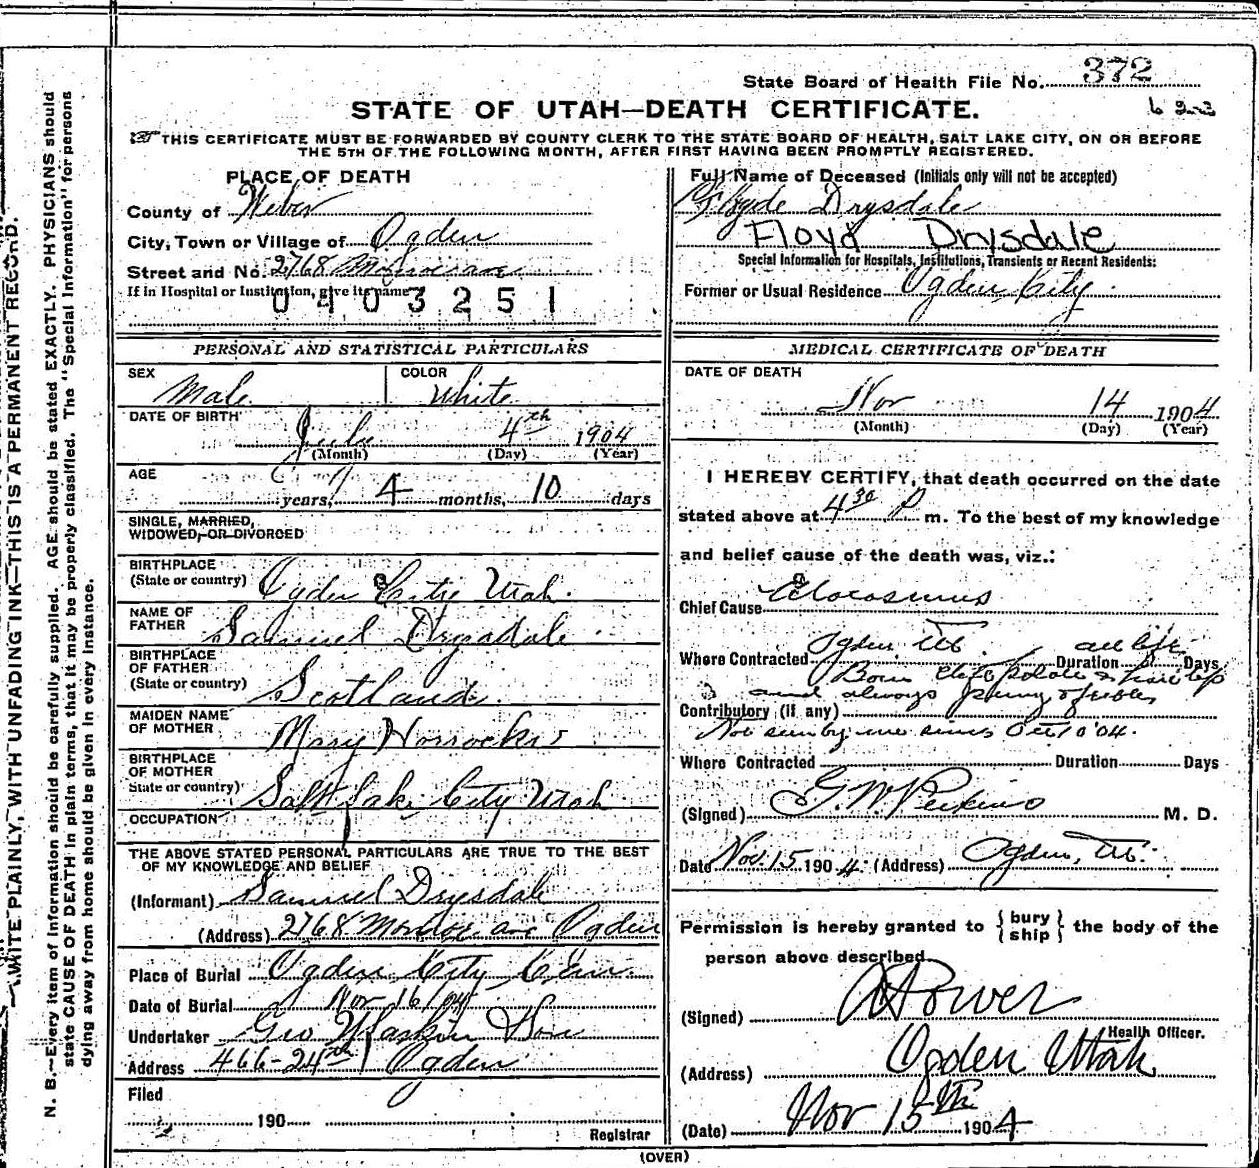 State Board of Health File No. 372
STATE OF UTAH—DEATH CERTIFICATE.
THIS CERTIFICATE MUST BE FORWARDED BY COUNTY CLERK TO THE STATE BOARD OF HEALTH, SALT LAKE CITY, ON OR BEFORE
THE 5TH OF THE FOLLOWING MONTH, AFTER FIRST HAVING BEEN PROMPTLY REGISTERED.
PLACE OF DEATH
County of Weber
City, Town or Village of Ogden
Street and No. 2768 Monroe ave
If in Hospital or Institution, give its name
0403251
Full Name of Deceased (Initials only will not be accepted)
Drysdale
Floyd Drysdale
Special Information for Hospitals, Institutions, Transients or Recent Residents:
Former or Usual Residence Ogden City
PERSONAL AND STATISTICAL PARTICULARS
SEX Male COLOR White
DATE OF BIRTH July 4th 1904
(Month) (Day) (Year)
AGE
years, 4 months, 10 days
SINGLE, MARRIED,
WIDOWED, OR DIVORCED
BIRTHPLACE
(State or country) Ogden City Utah.
NAME OF
FATHER Samuel Drysdale
BIRTHPLACE
OF FATHER
(State or country) Scotland.
MAIDEN NAME
OF MOTHER Mary Horrocks
BIRTHPLACE
OF MOTHER
State or country) Salt Lake City Utah
OCCUPATION
THE ABOVE STATED PERSONAL PARTICULARS ARE TRUE TO THE BEST
OF MY KNOWLEDGE AND BELIEF
(Informant) Samuel Drysdale
(Address) 2768 Monroe ave Ogden
Place of Burial Ogden City Cem
Date of Burial Nov 16/04
Undertaker Geo Larkin Son
Address 466-24th Ogden
Filed
190
Registrar
MEDICAL CERTIFICATE OF DEATH
DATE OF DEATH
Nov 14 1904
(Month) (Day) (Year)
I HEREBY CERTIFY, that death occurred on the date
stated above at 4 30 P m. To the best of my knowledge
and belief cause of the death was, viz.:
Chief Cause
Where Contracted Ogden Ut. Duration all life Days
Born cleft palate & hare lip
and always puny & feeble
Contributory (if any)
Not seen by me since Oct 10 '04.
Where Contracted Duration Days
(Signed) G. W. Perkins M. D.
Date Nov. 15 1904 (Address) Ogden, Ut.
Permission is hereby granted to {bury ship} the body of the
person above described.
(Signed) Power
Health Officer.
(Address) Ogden Utah
(Date) Nov 15th 1904
(OVER)
WRITE PLAINLY, WITH UNFADING INK—THIS IS A PERMANENT RECORD.
N. B.—Every item of information should be carefully supplied. AGE should be stated EXACTLY. PHYSICIANS should
state CAUSE OF DEATH in plain terms, that it may be properly classified. The "Special Information" for persons
dying away from home should be given in every instance.